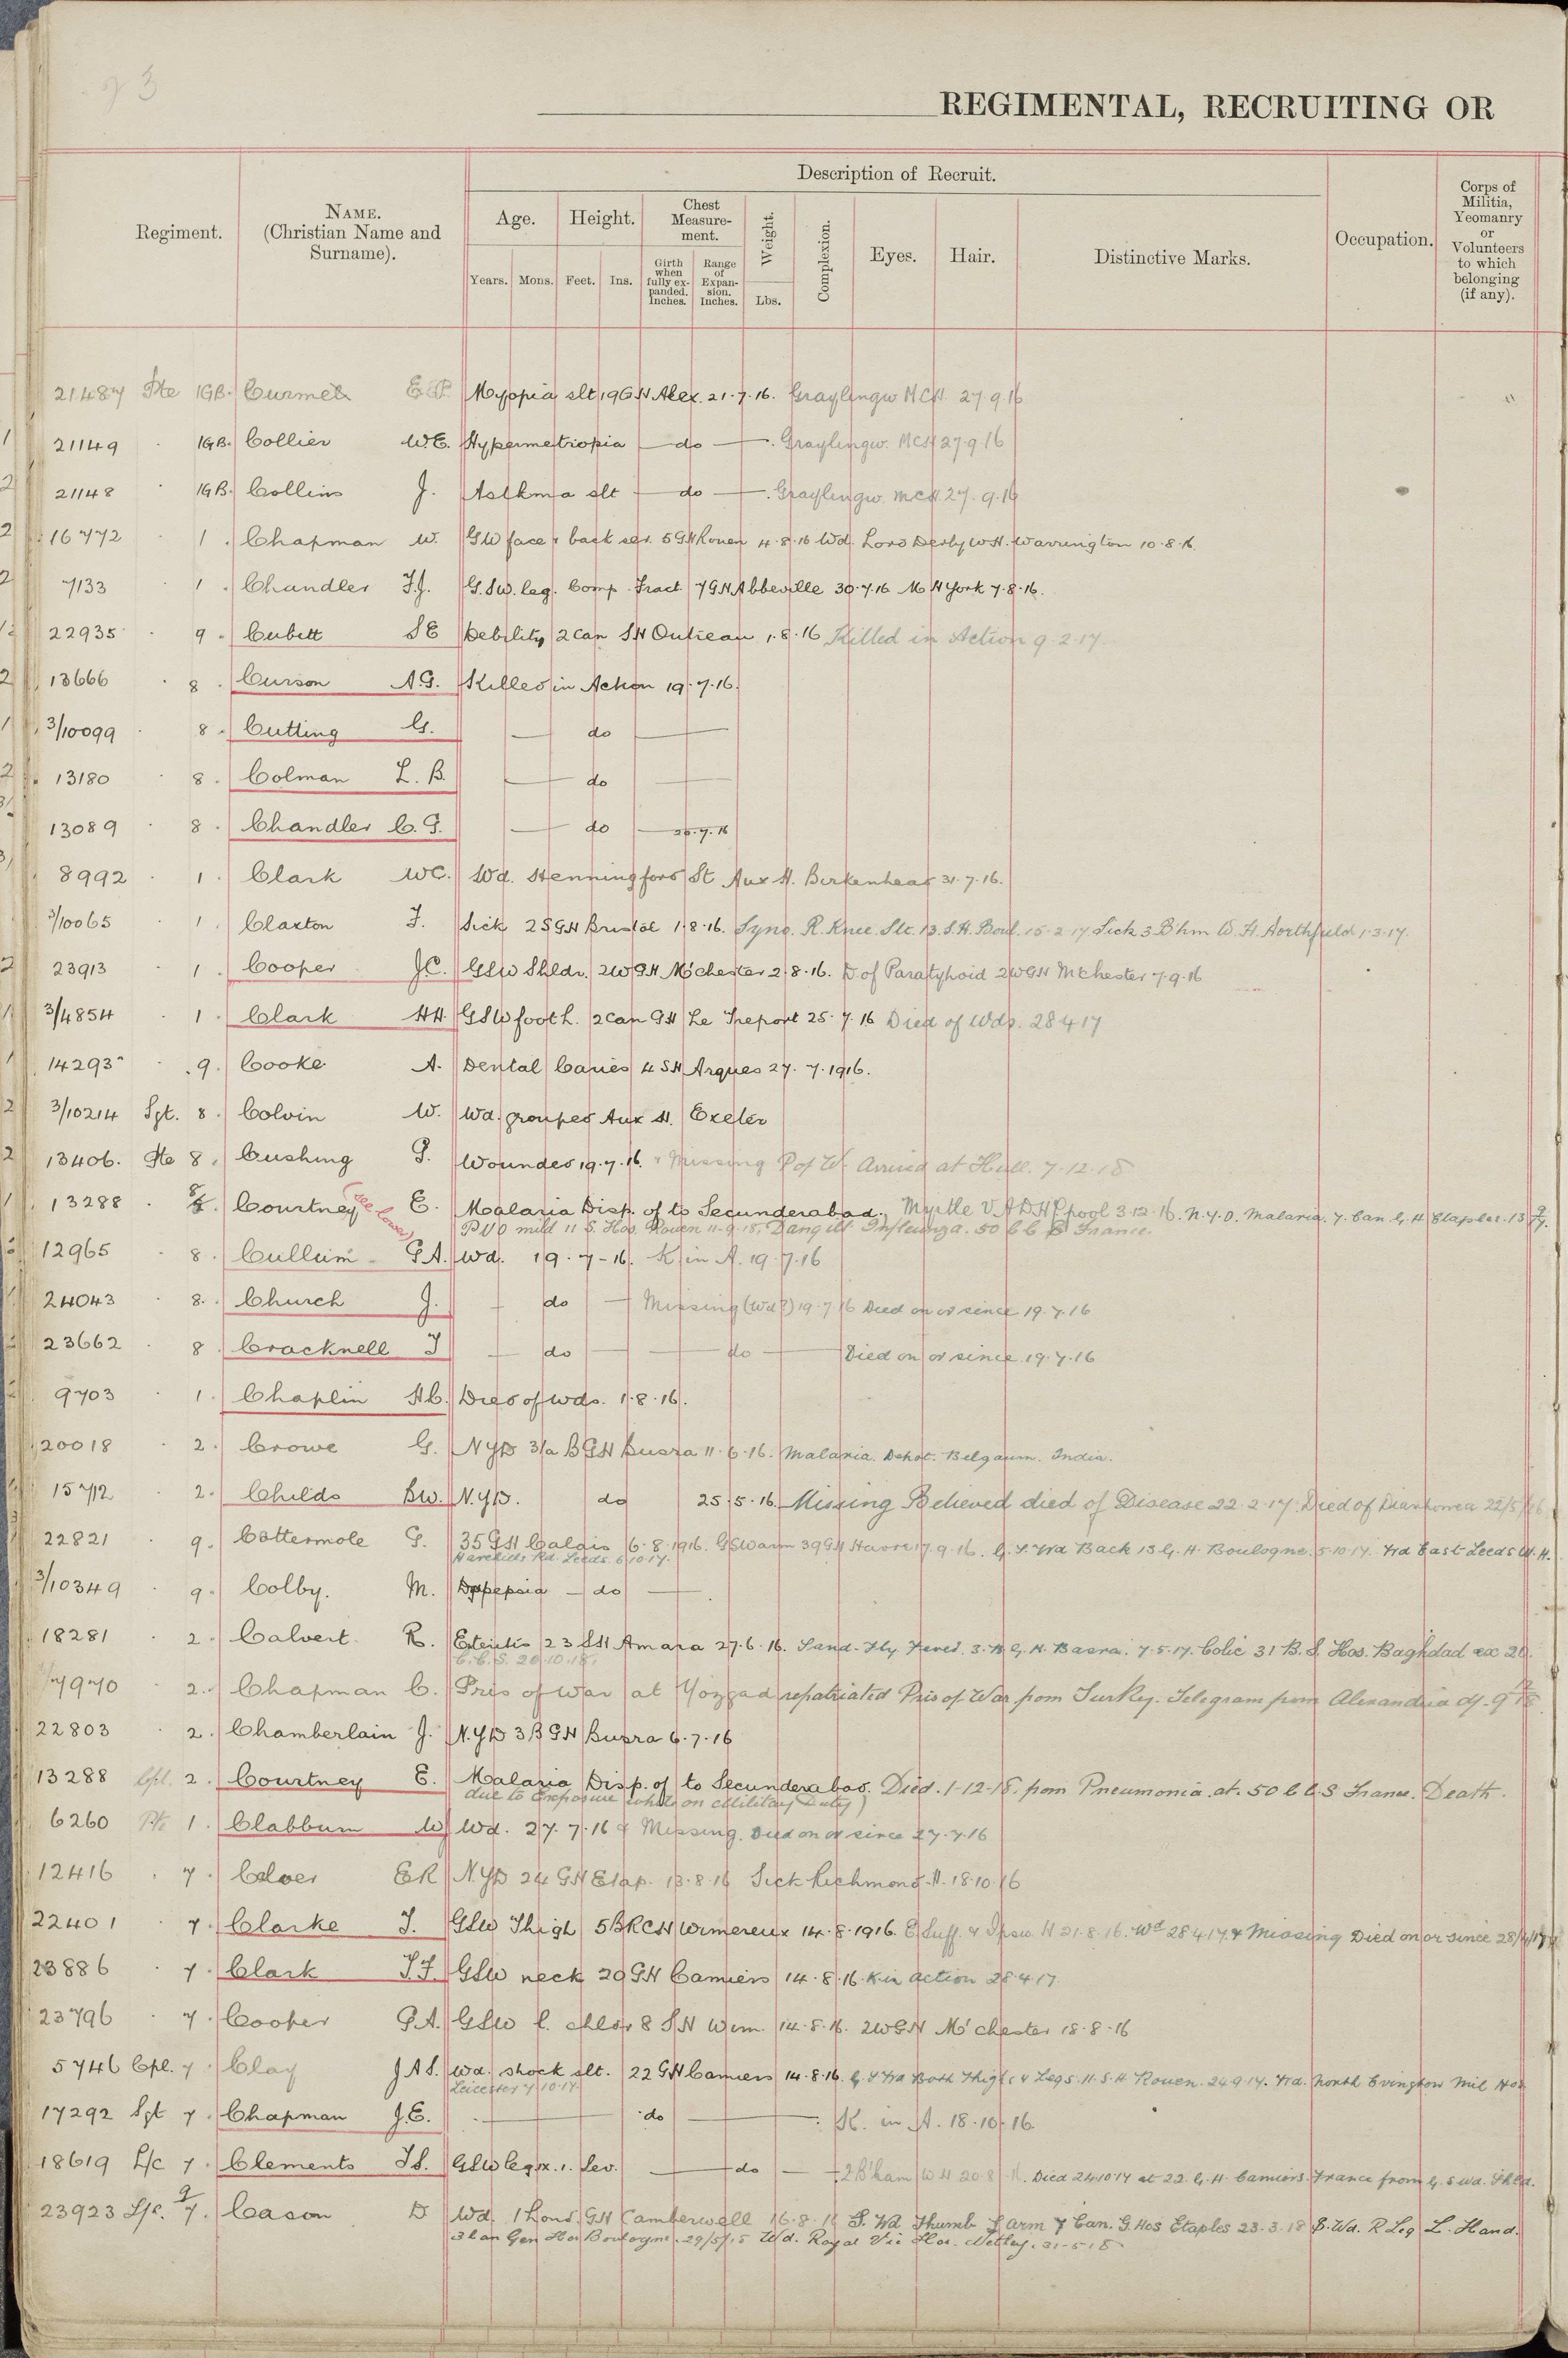 REGIMENTAL, RECRUITING OR
Description of Recruit.
Regiment.
NAME.
(Christian Name and
Surname).
Age.
Height.
Chest
Measure-
ment.
Weight.
Complexion.
Eyes.
Hair.
Distinctive Marks.
Occupation.
Corps of
Militia,
Yeomanry
or
Volunteers
to which
belonging
(if any).
Years.
Mons.
Feet.
Ins.
Girth
when
fully ex-
panded.
Inches.
Range
of
Expan-
sion.
Inches.
Lbs.
21487 Pte 1GB. E Myopia slt 19GH Alex. 21.7.16. Graylingw MCH. 27.9.16
21149 . 1GB. Collier W.E. Hypermetropia — do — . Graylingw. MCH 27.9.16
21148 " 1GB. Collins J. Asthma slt — do — . Graylingw. MCH. 27.9.16
16772 . 1 . Chapman W. GSW face & back sev. 5GH Rouen 4.8.16 Wd. Lord Derby WH. Warrington 10.8.16
7133 . 1 . Chandler F.J. G.SW. leg. Comp. Fract. 7GH Abbeville 30.7.16 MH York 7.8.16.
22935 . 9 . Cubitt SE Debility 2 Can SH Outreau 1.8.16 Killed in Action 9.2.17
13666 . 8 . Curson A.G. Killed in Action 19.7.16.
3/10099 . 8 . Cutting G. — do —
13180 . 8 . Colman L.B. — do —
13089 . 8 . Chandler C.G. — do — 20.7.16
8992 . 1 . Clark WC. Wd. Henningford St Aux H. Birkenhead 31.7.16.
3/10065 . 1 . Claxton F. Sick 2SGH Bristol 1.8.16. Syno. R. Knee. Slt. 13.S.H. Boul. 15.2.17 Sick 3 Bhm W.H. Northfield 1.3.17.
23913 . 1 . Cooper J.C. GSW Shldr. 2WGH M'chester 2.8.16. D. of Paratyphoid 2WGH Mchester 7.9.16
3/4854 . 1 . Clark HH. GSW foot L. 2 Can GH Le Treport 25.7.16 Died of Wds. 28 4 17
14293 . 9. Cooke A. Dental Caries 4 SH Arques 27.7.1916.
3/10214 Sgt. 8 . Colvin W. Wd. Aux H. Exeter
13406. Pte 8 . Cushing G. Wounded 19.7.16. & Missing P of W. Arrived at Hull. 7.12.18
13288 . 8 . Courtney (see lower) E. Malaria Disp. of to Secunderabad. Myrtle VADH P'pool 3.12.16. N.Y.D. Malaria. 7. Can. G. H Etaples. 13
PUO mild 11 S. Hos. Rouen 11.9.18. Dang ill Influenza. 50 CCS France.
12965 . 8 . Cullum GA. Wd. 19.7-16. K in A. 19.7.16
24043 . 8. Church J. — do — Missing (Wd?) 19.7.16 Died on or since 19.7.16
23662 . 8 . Cracknell J — do — — do — Died on or since 19.7.16
9703 . 1. Chaplin HC. Died of wds. 1.8.16.
20018 . 2 . Crowe G. NYD 3/a BGH Busra 11.6.16. Malaria. Debot. Belgaum. India.
15712 . 2. Childs BW. N.Y.D. do 25.5.16. Missing Believed died of Disease 22.2.17. Died of Diarrhoea 22/5/16
22821 . 9. Cattermole G. 35GH Calais 6.8.1916. GSW arm 39GH Havre 17.9.16. G.S. Wd Back 13 G.H. Boulogne. 5.10.17. Wd East Leeds W.H.
Harehills Rd. Leeds. 6.10.17.
3/10349 . 9. Colby. M. Dyspepsia — do — .
18281 . 2. Calvert R. Enteritis 23 SH Amara 27.6.16. Sand-fly Fever. 3. B.G.H. Basra. 7.5.17. Colic 31 B.S. Hos. Baghdad ex 20.
C.C.S. 20.10.18.
7970 . 2. Chapman C. Pris of War at Yozgad repatriated Pris of War from Turkey. Telegram from Alexandria
22803 . 2. Chamberlain J. N.Y.D 3BGH Busra 6.7.16
13288 Cpl. 2 . Courtney E. Malaria Disp. of to Secunderabad. Died. 1-12-18. from Pneumonia. at. 50 CCS France. Death.
due to Exposure whilst on Military Duty)
6260 Pte 1 . Clabburn W Wd. 27.7.16 & Missing. Died on or since 27.7.16
12416 . 7 . ER NYD 24 GH Etap. 13.8.16 Sick Richmond H. 18.10.16
22401 . 7. Clarke J. GSW Thigh 5BRCH Wimereux 14.8.1916. E Suff. & Ipsw. H 21.8.16. Wd 28 4.17 & Missing Died on or since 28/4/17
23886 . 7 . Clark J.F. GSW neck 20GH Camiers 14.8.16. K in action 28 4 17.
23796 . 7 . Cooper G.A. GSW l. 8 SH Wim. 14.8.16. 2WGH M'chester 18.8.16
5746 Cpl. 7 . Clay JAS. Wd. shock slt. 22GH Camiers 14.8.16. G.S Wd Both Thighs & Legs. 11.S.H. Rouen. 24.9.17. Wd. North Evington Mil Hos
Leicester 7.10.17.
17292 Sgt 7 . Chapman J.E. — do — . K. in A. 18.10.16.
18619 L/c 7 . Clements GSW leg sev. — do — 2 B'ham WH 20.8. Died 24.10.17 at 22. G.H. Camiers. France from G.S wd. Shld.
23923 L/c. 7. Cason D Wd. 1 Lond. GH Camberwell 16.8.16 S. Wd. Thumb L arm 7 Can. G. Hos Etaples 23.3.18 S. Wd. R Leg L. Hand.
3 Can Gen Hos Boulogne. 29/5/18 Wd. Royal Vic Hos. Netley. 31-5-18